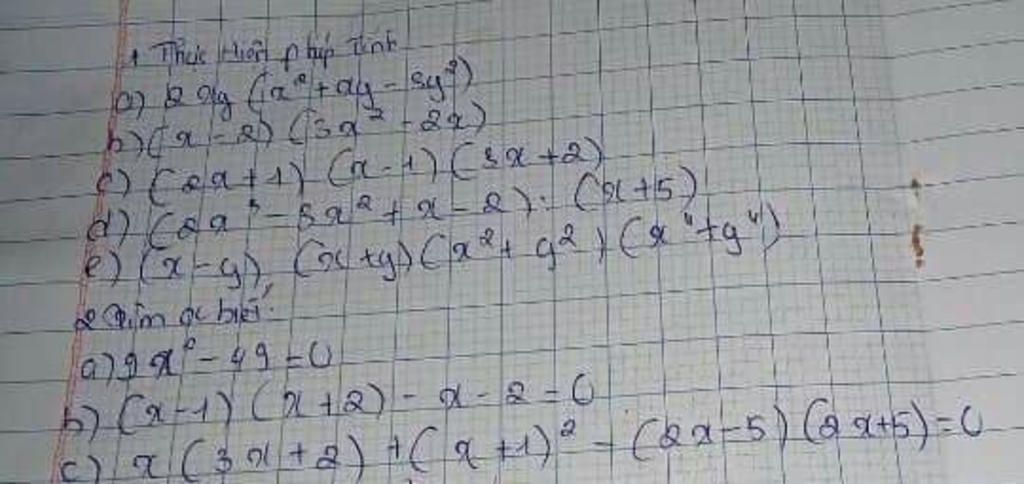 1 Thực hiện phép tính
a) 2xy (x² + xy - 3y²)
b) (x - 2) (3x² - 2x)
c) (2x + 1) (x - 1) (3x + 2)
d) (2x³ - 3x² + x - 2) . (x + 5)
e) (x - y) (x + y) (x² + y²) (x⁴ + y⁴)
2 Tìm x biết:
a) 9x² - 49 = 0
b) (x - 1) (x + 2) - x - 2 = 0
c) x (3x + 2) + (x + 1)² - (2x - 5) (2x + 5) = 0